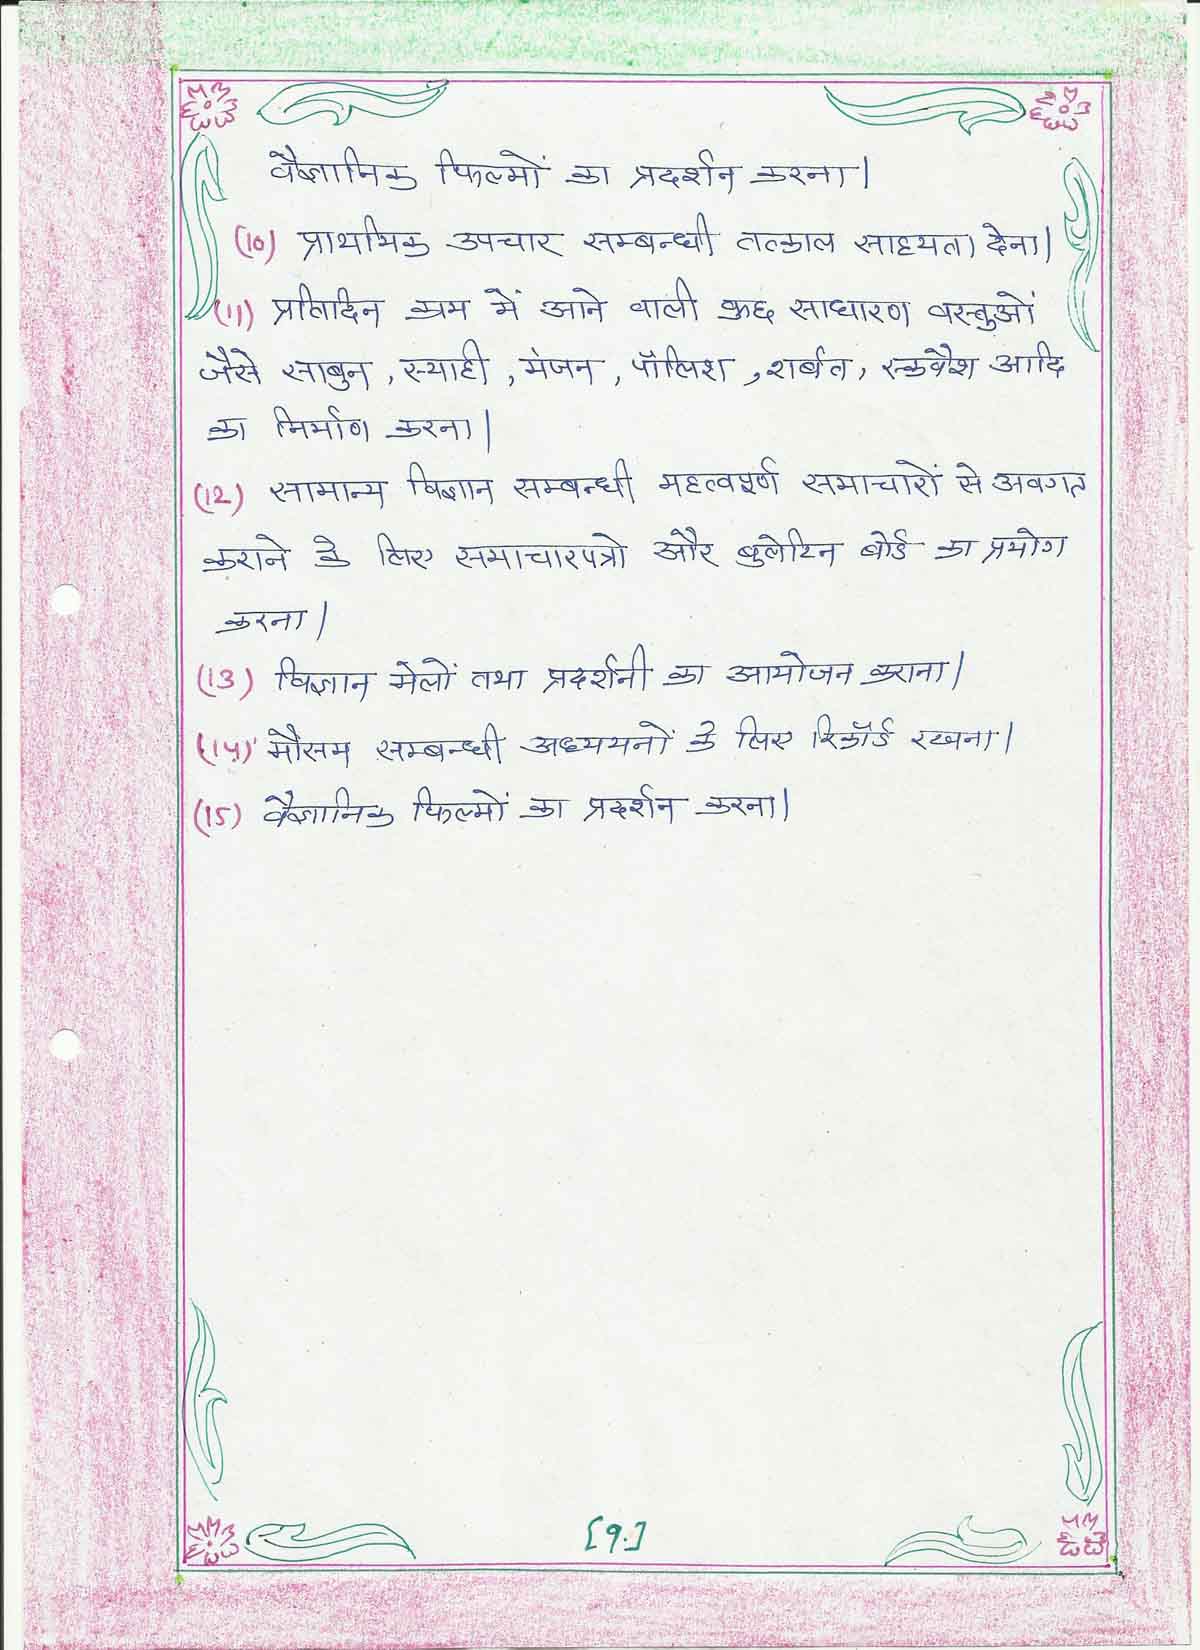 वैज्ञानिक फिल्मों का प्रदर्शन करना।
(10) प्राथमिक उपचार सम्बन्धी तत्काल साहयता देना।
(11) प्रतिदिन काम में आने वाली कुछ साधारण वस्तुओं
जैसे साबुन, स्याही, मंजन, पॉलिश, शर्बत, स्क्वैश आदि
का निर्माण करना।
(12) सामान्य विज्ञान सम्बन्धी महत्वपूर्ण समाचारों से अवगत
कराने के लिए समाचारपत्रो और बुलेटिन बोर्ड का प्रयोग
करना।
(13) विज्ञान मेलों तथा प्रदर्शनी का आयोजन कराना।
(14) मौसम सम्बन्धी अध्ययनों के लिए रिकॉर्ड रखना।
(15) वैज्ञानिक फिल्मों का प्रदर्शन करना।
[9.]